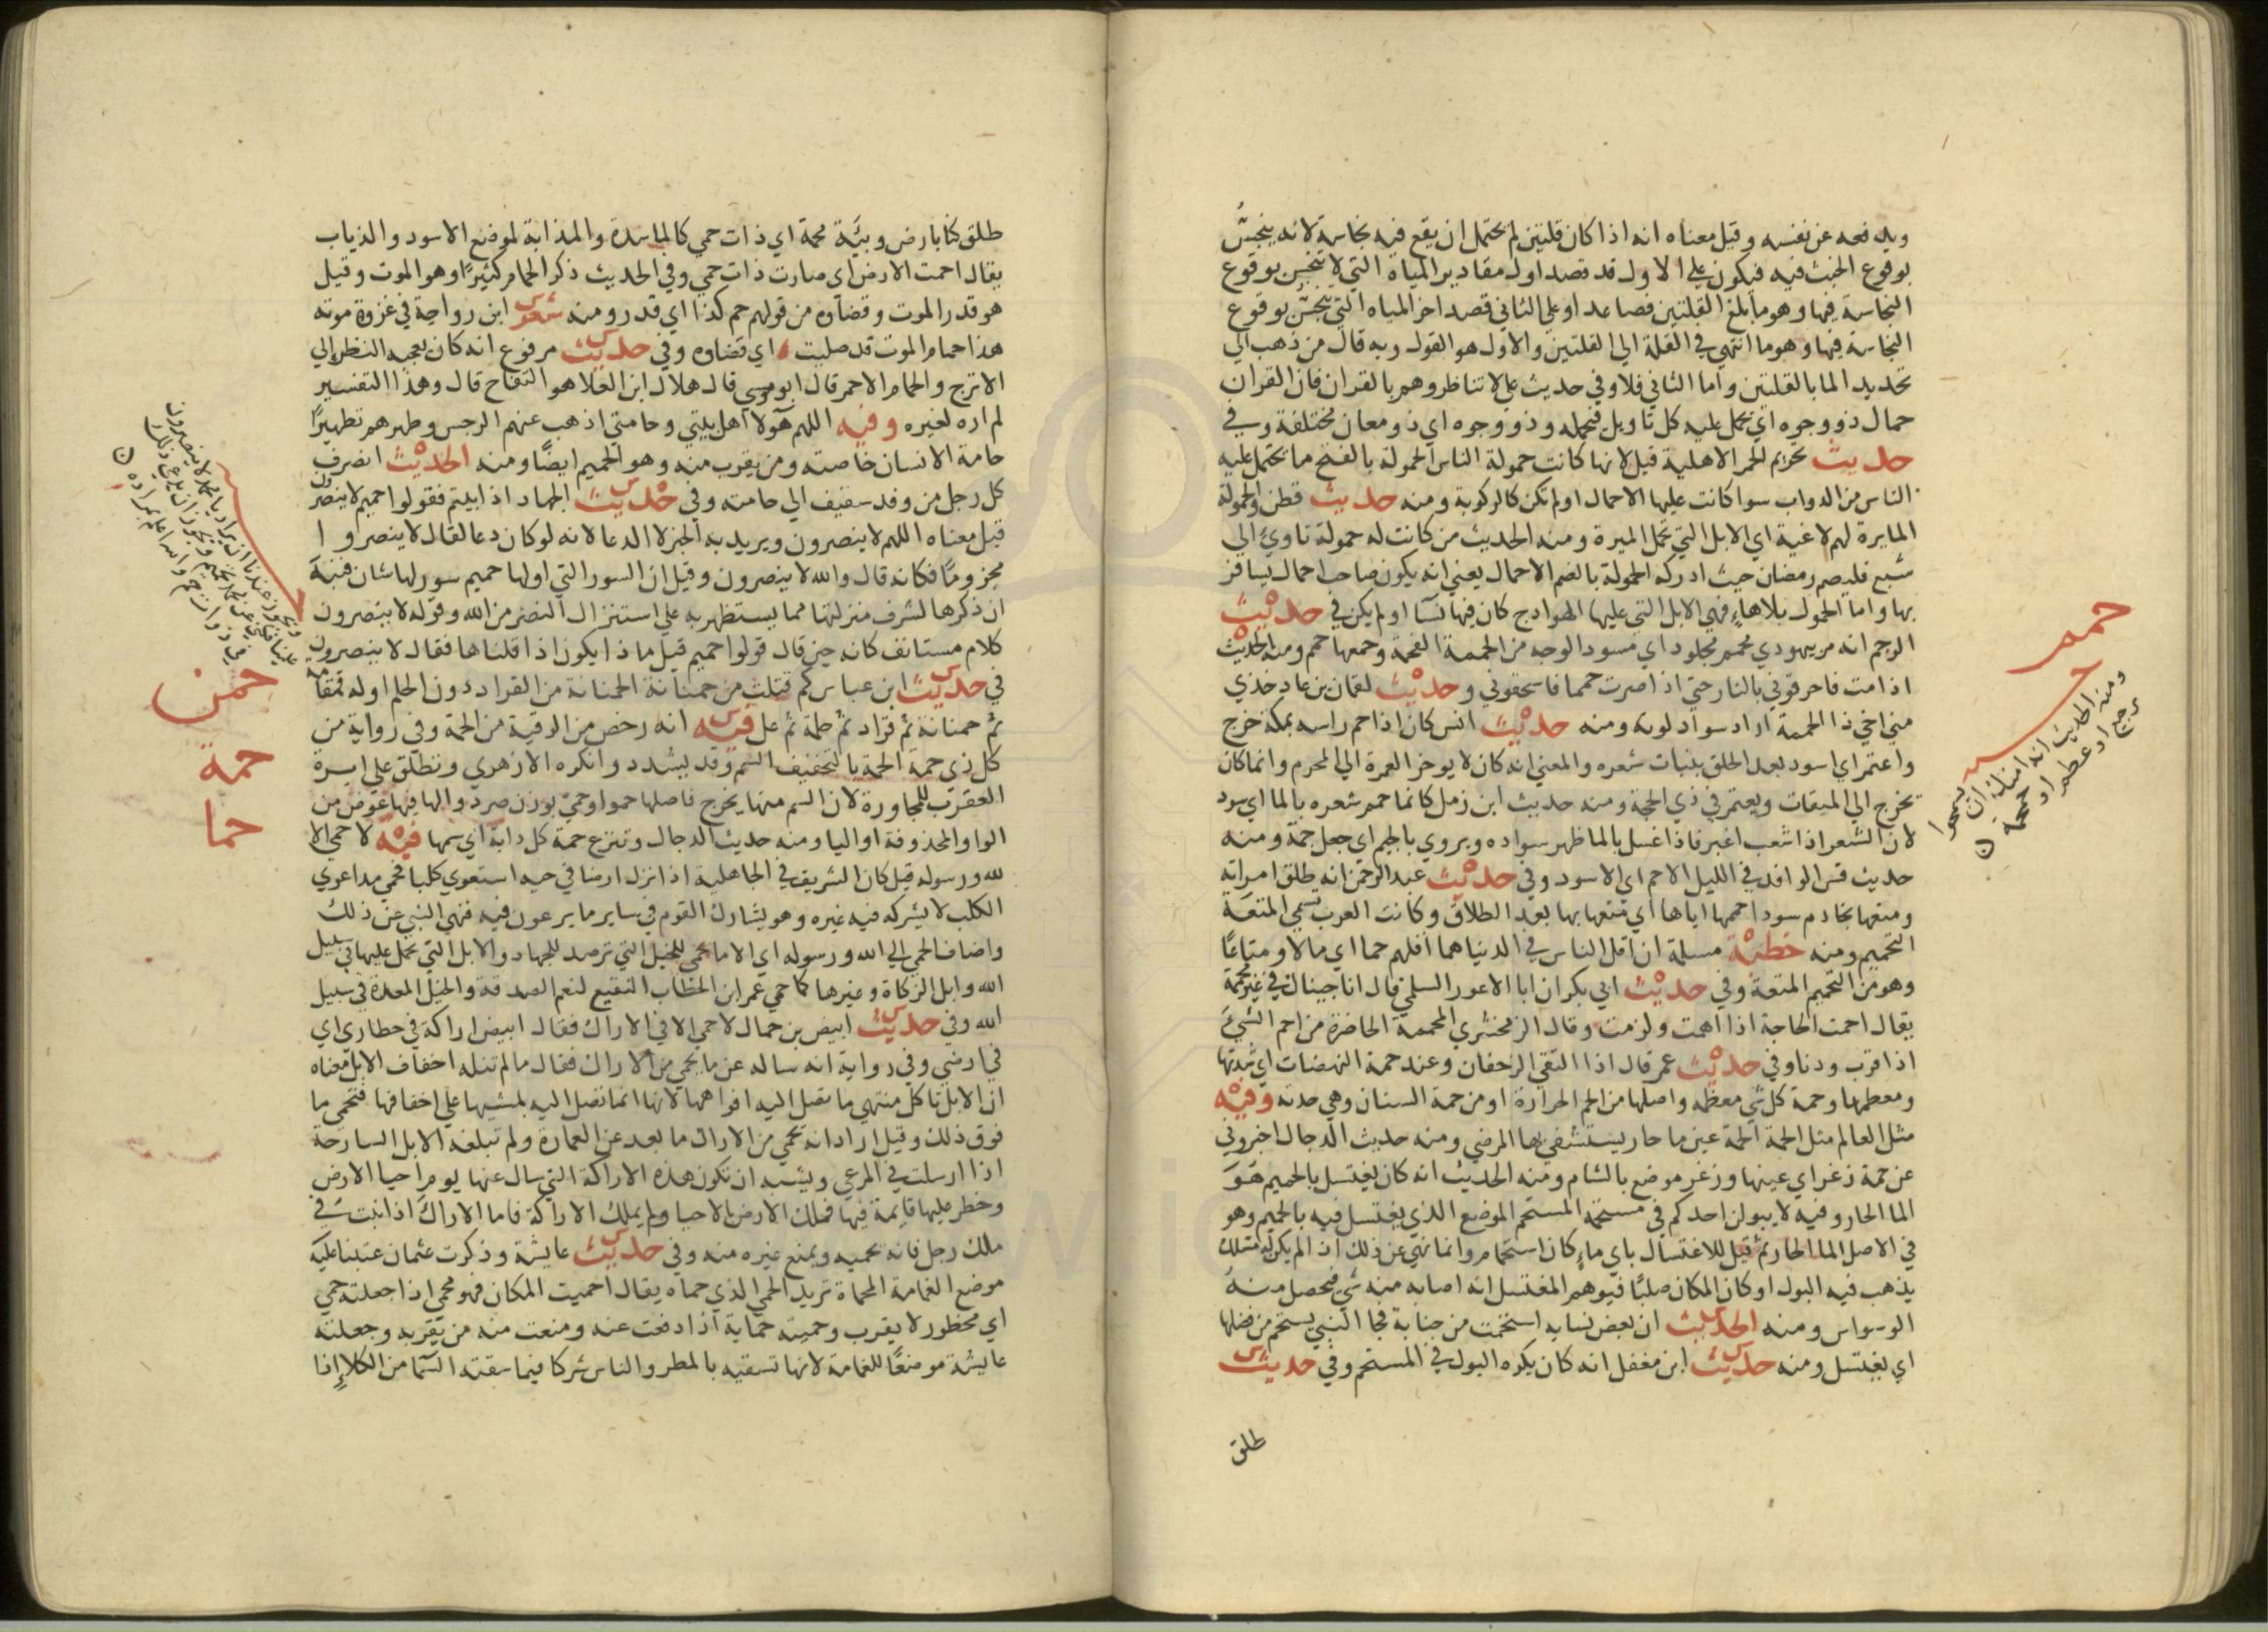 ويدفعه عن نفسه وقيل معناه انه اذا كان قلتين لم يحتمل ان يقع فيه نجاسة لانه ينجسُ
بوقوع الخبث فيه فيكون علي الاول قد قصد اول مقادير المياه التي لا تنجس بوقوع
النجاسة فيها وهو ما بلغ القلتين فصاعدا وعلي الثاني قصد اخر المياه التي تنجس بوقوع
النجاسة فيها وهو ما انتهي في القلة الي القلتين والاول هو القول وبه قال من ذهب الي
تحديد الما بالقلتين واما الثاني فلا وفي حديث علي لا تناظروهم بالقران فان القران
حمال ذو وجوه اي يحمل عليه كل تاويل فيحمله وذو وجوه اي ذو معان مختلفة وفي
حديث تحريم الحمر الاهلية قيل لانها كانت حمولة الناس الحمولة بالفتح ما يحتمل عليه
الناس من الدواب سوا كانت عليها الاحمال او لم تكن كالركوبة ومنه حديث قطن والحمولة
المايرة لهم لاغية اي الابل التي تحمل الميرة ومنه الحديث من كانت له حمولة تاوي الي
شبع فليصم رمضان حيث ادركه الحمولة بالضم الاحمال يعني انه يكون صاحب احمال يسافر
بها واما الحمول بلا هاءٍ فهي الابل التي عليها الهوادج كان فيها نسآ او لم يكن في حديث
الرجم انه مر بيهودي محمم مجلود اي مسود الوجه من الحممة الفحمة وجمعها حمم ومنه الحديث
اذا مت فاحرقوني بالنار حتي اذا صرت حمما فاسحقوني وحديث لقمان بن عاد خذي
مني اخي ذا الحممة اراد سواد لونه ومنه حديث انس كان اذا حمم راسه بمكة خرج
واعتمر اي اسود بعد الحلق بنبات شعره والمعني انه كان لا يوخر العمرة الي المحرم وانما كان
يخرج الي الميقات ويعتمر في ذي الحجة ومنه حديث ابن زمل كانما حمم شعره بالما اي سود
لان الشعر اذا شعث اغبر فاذا غسل بالما ظهر سواده ويروي بالجيم اي جعل جمة ومنه
حديث قس الوافد في الليل الاحم اي الاسود وفي حديث عبد الرحمن انه طلق امراته
ومتعها بخادم سودا حممها اياها اي متعها بها بعد الطلاق وكانت العرب تسمي المتعة
التحميم ومنه خطبة مسلمة ان اقل الناس في الدنيا هما اقلهم حما اي مالا ومتاعًا
وهو من التحميم المتعة وفي حديث ابي بكر ان ابا الاعور السلمي قال انا جيناك في غير محمة
يقال احمت الحاجة اذا اهمت ولزمت وقال الزمخشري المحمة الحاضرة من احم الشيءُ
اذا قرب ودنا وفي حديث عمر قال اذا التقي الزحفان وعند حمة النهضات اي شدتها
ومعظمها وحمة كل شي معظمه واصلها من الحم الحرارة او من حمة السنان وهي حدته وفيه
مثل العالم مثل الحمة الحمة عين ما حار يستشفي بها المرضي ومنه حديث الدجال اخبروني
عن حمة زغر اي عينها وزغر موضع بالشام ومنه الحديث انه كان يغتسل بالحميم هوَ
الما الحار وفيه لا يبولن احدكم في مستحمه المستحم الموضع الذي يغتسل فيه بالحميم وهو
في الاصل الما الحار ثم قيل للاغتسال باي ماءٍ كان استحمام وانما نهي عن ذلك اذا لم يكن له مسلك
يذهب فيه البول او كان المكان صلبًا فيوهم المغتسل انه اصابه منه شي فيحصل منهُ
الوسواس ومنه الحديث ان بعض نسايه استحمت من جنابة فجا النبي يستحم من فضلها
اي يغتسل ومنه حديث ابن مغفل انه كان يكره البول في المستحم وفي حديث
طلق
حمم
ومنه الحديث انه
طلق كنا بارض وبيَّة محمة اي ذات حمي كالماسدة والمذابة لموضع الاسود والذياب
يقال احمت الارض اي صارت ذات حمي وفي الحديث ذكر الحمام كثيرًا وهو الموت وقيل
هو قدر الموت وقضاوه من قولهم حم كذا اي قدر ومنه شعر ابن رواحة في غزوة موته
هذا حمام الموت قد صليت اي قضاوه وفي حديث مرفوع انه كان يعجبه النظر الي
الاترج والحمام الاحمر قال ابو موسي قال هلال ابن العلا هو التفاح قال وهذا التفسير
لم اره لغيره وفيه اللهم هآولا اهل بيتي وحامتي اذهب عنهم الرجس وطهرهم تطهيرًا
حامة الانسان خاصته ومن يقرب منه وهو الحميم ايضًا ومنه الحديث انصرف
كل رجل من وفد ثقيف الي حامته وفي حديث الجهاد اذا بيتم فقولوا حميم لا ينصرون
قيل معناه اللهم لا ينصرون ويريد به الخبر لا الدعا لانه لو كان دعا لقال لا ينصروا
مجزومًا فكانه قال والله لا ينصرون وقيل ان السور التي اولها حميم سور لها شان فنبه
ان ذكرها لشرف منزلتها مما يستظهر به علي استنزال النصر من الله وقوله لا ينصرون
كلام مستانف كانه حين قال قولوا حميم قيل ماذا يكون اذا قلناها فقال لا ينصرون
في حديث ابن عباس كم قتلت من حمنانة الحمنانة من القراد دون الحلم اوله قمقامة
ثم حمنانة ثم قراد ثم حلمة ثم عل فيه انه رخص من الرقية من الحمة وفي رواية من
كل ذي حمة الحمة بالتخفيف السم وقد يشدد وانكره الازهري وتطلق علي ابرة
العقرب للمجاورة لان السم منها يخرج فاصلها حمو او حمي بوزن صرد والها فيها عوض من
الواو المحذوفة او اليا ومنه حديث الدجال وتنزع حمة كل دابة اي سمها فيه لا حمي الا
لله ورسوله قيل كان الشريف في الجاهلية اذا نزل ارضا في حيه استعوي كلبا فحمي مدا عوي
الكلب لا يشركه فيه غيره وهو يشارك القوم في ساير ما يرعون فيه فنهي النبي عن ذلك
واضاف الحمي الي الله ورسوله اي الا ما يحمي للخيل التي ترصد للجهاد والابل التي يحمل عليها في سبيل
الله وابل الزكاة وغيرها كما حمي عمر ابن الخطاب النقيع لنعم الصدقة والخيل المعدة في سبيل
الله وفي حديث ابيض بن حمال لا حمي الا في الاراك فقال ابيض اراكة في حظاري اي
في ارضي وفي رواية انه ساله عن ما يحمي من الاراك فقال ما لم تنله اخفاف الابل معناه
ان الابل تاكل منتهي ما تصل اليه افواهها لانها انما تصل اليه بمشيها علي اخفافها فتحمي ما
فوق ذلك وقيل اراد انه يحمي من الاراك ما بعد عن العمارة ولم تبلغه الابل السارحة
اذا ارسلت في المرعي ويشبه ان تكون هذه الاراكة التي سال عنها يوم احيا الارض
وحظر عليها قايمة فيها فملك الارض بالاحيا ولم يملك الاراكة فاما الاراك اذا نبت في
ملك رجل فانه يحميه ويمنع غيره منه وفي حديث عايشة وذكرت عثمان عتبنا عليه
موضع الغمامة المحماة تريد الحمي الذي حماه يقال احميت المكان فهو محمي اذا جعلته حمي
اي محظور لا يقرب وحميته حماية اذا دفعت عنه ومنعت منه من يقربه وجعلته
عايشة موضعًا للغمامة لانها تسقيه بالمطر والناس شركا فيما سقته السما من الكلاءِ اذا
حمن
حمة
حما